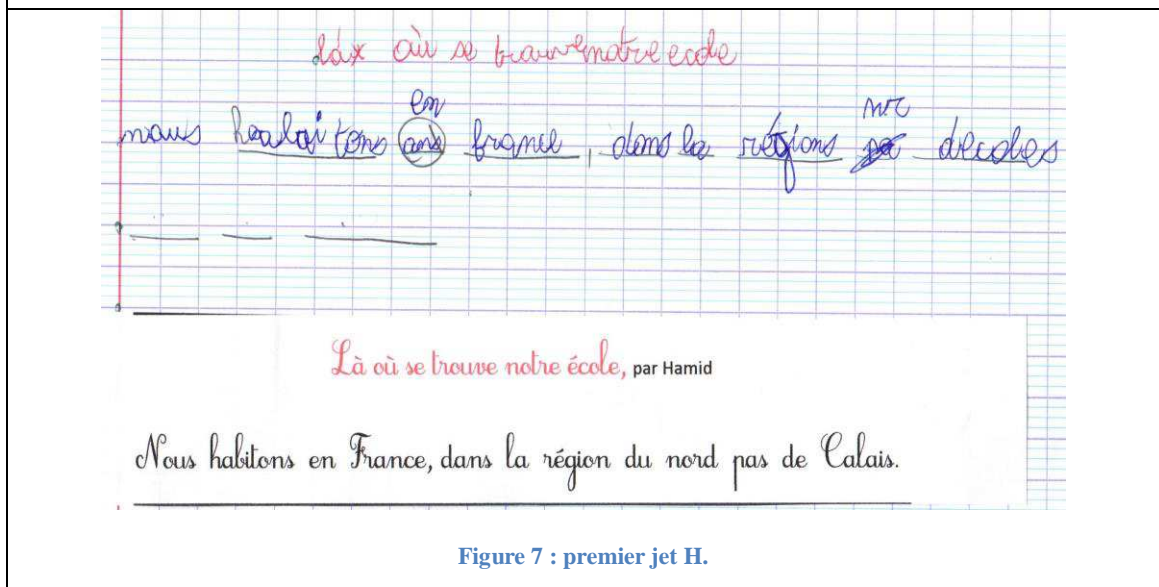 où se trouve notre ecole
en
nous ans france, dans la régions decoles
Là où se trouve notre école, par Hamid
Nous habitons en France, dans la région du nord pas de Calais.
Figure 7 : premier jet H.